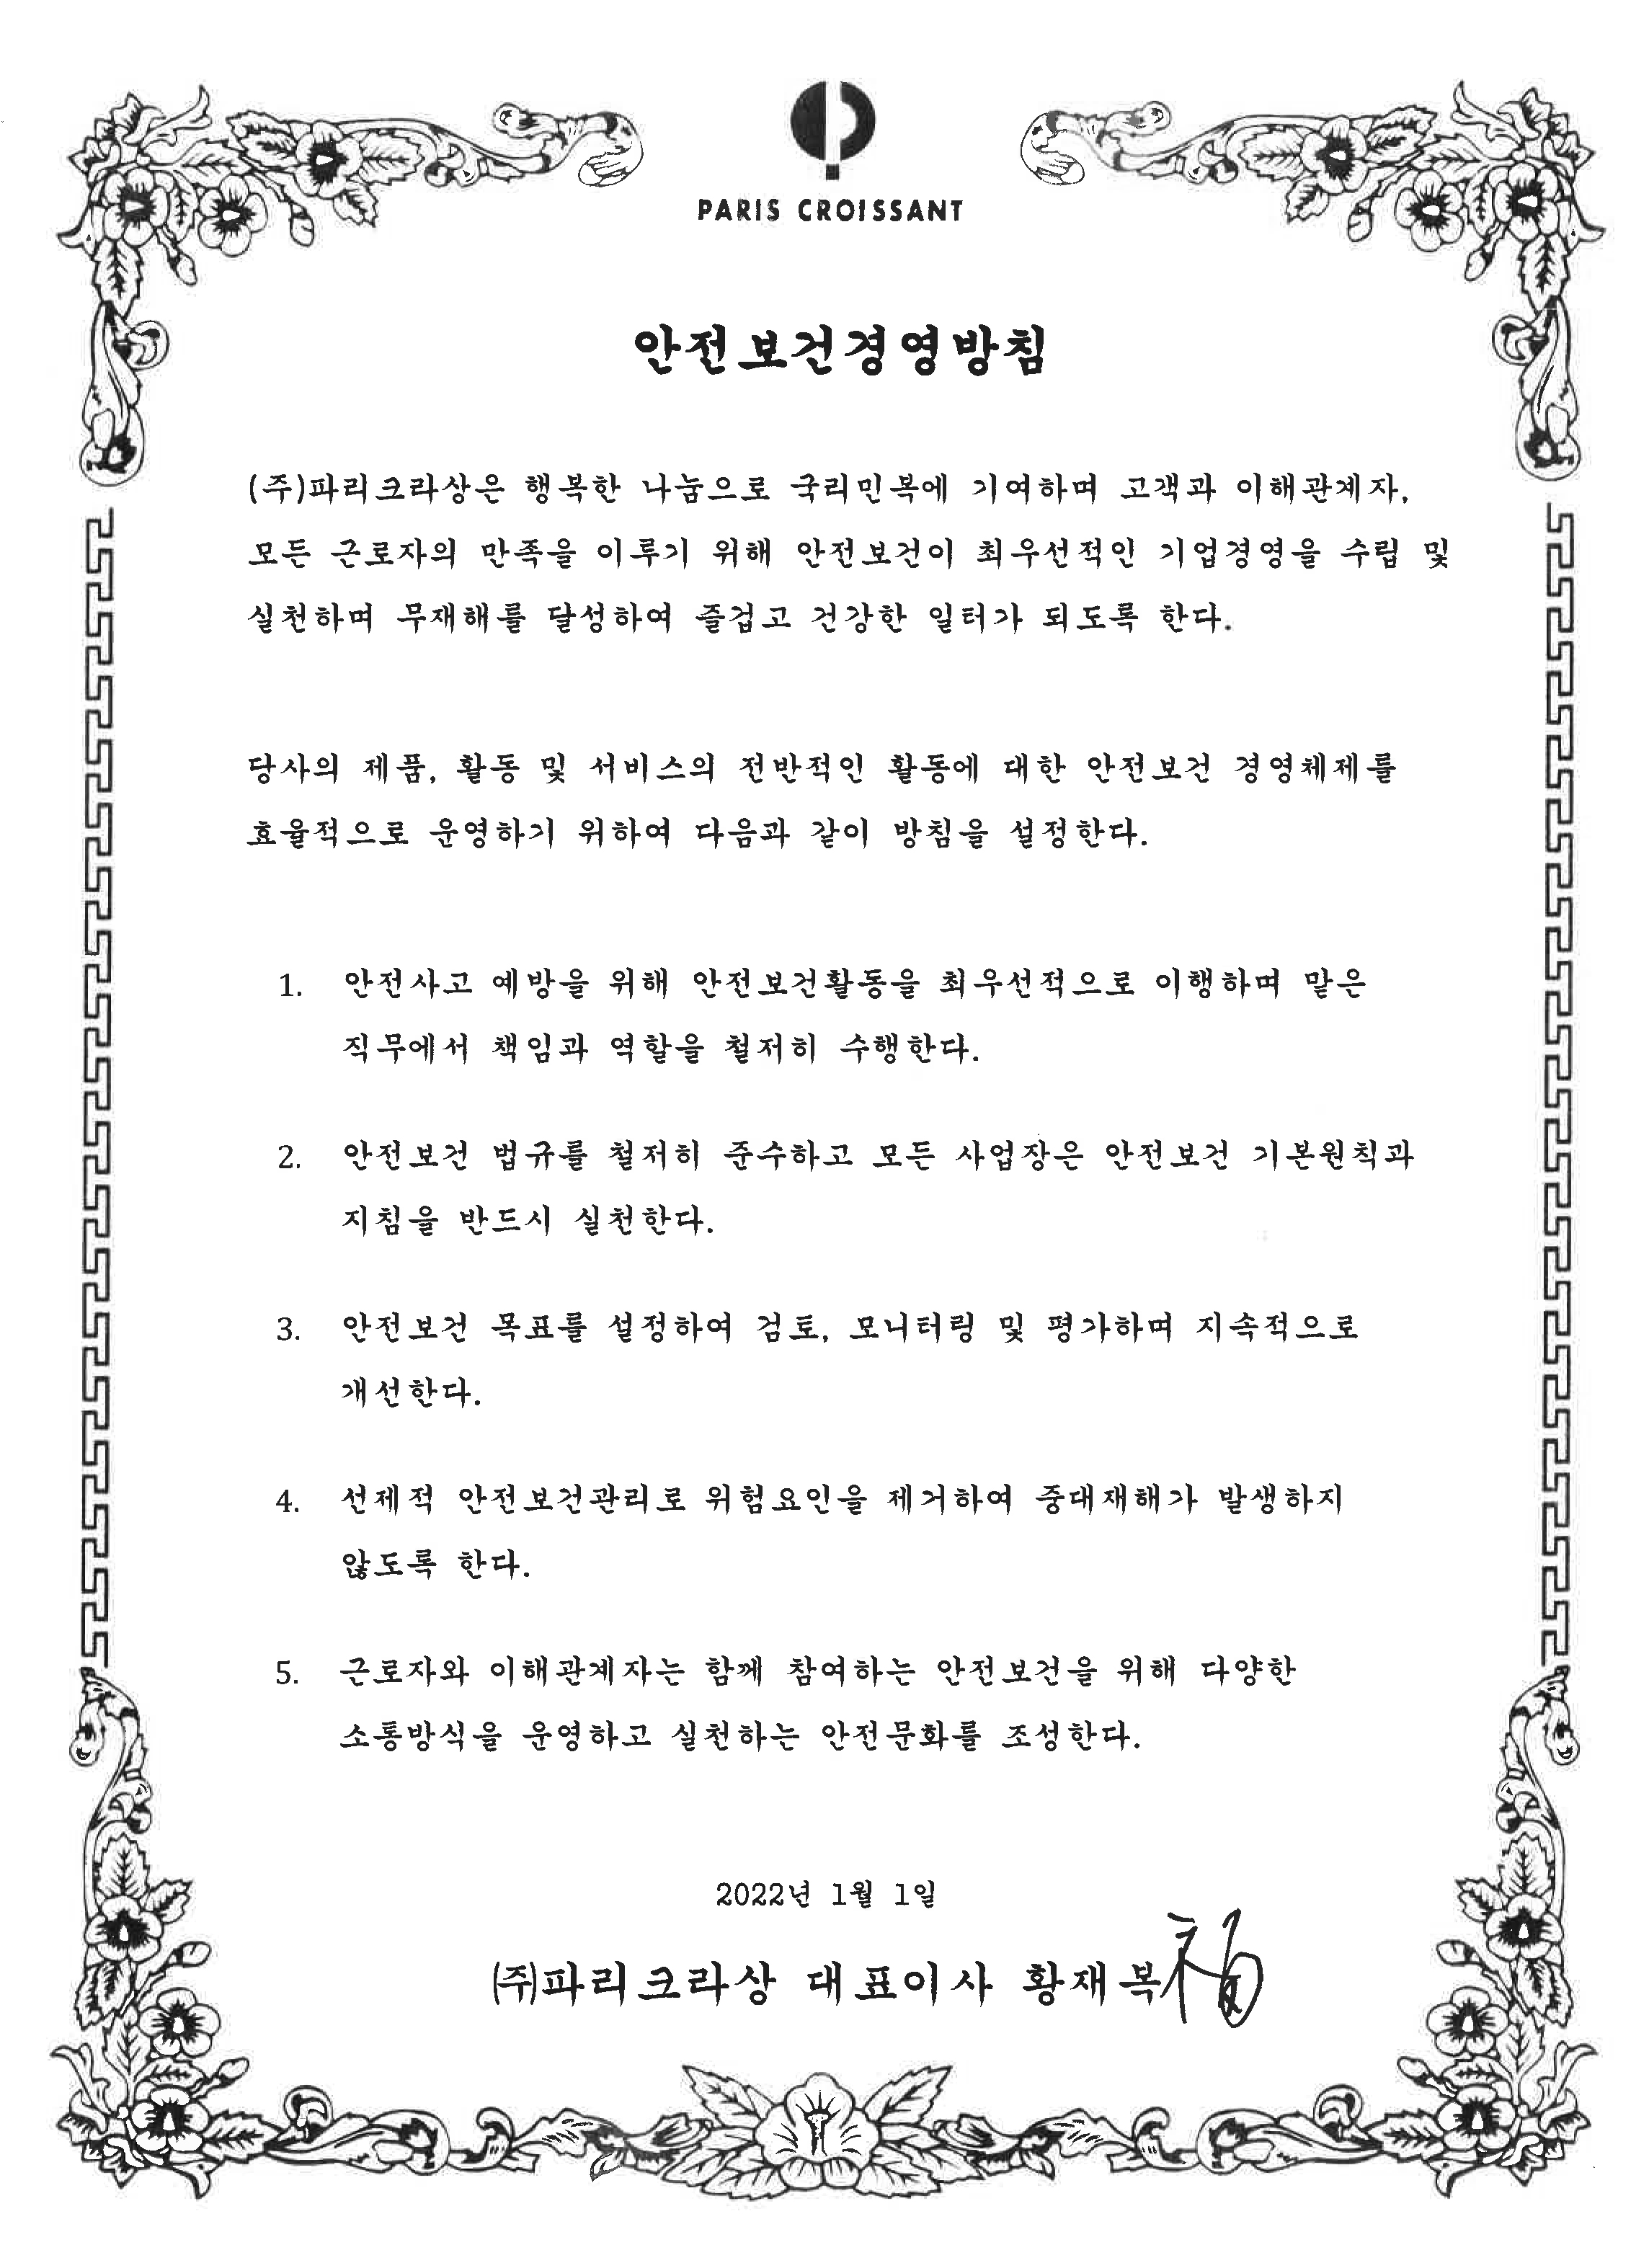 PARIS CROISSANT
안전보건경영방침
(주)파리크라상은 행복한 나눔으로 국리민복에 기여하며 고객과 이해관계자,
모든 근로자의 만족을 이루기 위해 안전보건이 최우선적인 기업경영을 수립 및
실천하며 무재해를 달성하여 즐겁고 건강한 일터가 되도록 한다.
당사의 제품, 활동 및 서비스의 전반적인 활동에 대한 안전보건 경영체제를
효율적으로 운영하기 위하여 다음과 같이 방침을 설정한다.
1. 안전사고 예방을 위해 안전보건활동을 최우선적으로 이행하며 맡은
직무에서 책임과 역할을 철저히 수행한다.
2. 안전보건 법규를 철저히 준수하고 모든 사업장은 안전보건 기본원칙과
지침을 반드시 실천한다.
3. 안전보건 목표를 설정하여 검토, 모니터링 및 평가하며 지속적으로
개선한다.
4. 선제적 안전보건관리로 위험요인을 제거하여 중대재해가 발생하지
않도록 한다.
5. 근로자와 이해관계자는 함께 참여하는 안전보건을 위해 다양한
소통방식을 운영하고 실천하는 안전문화를 조성한다.
2022년 1월 1일
㈜파리크라상 대표이사 황재복